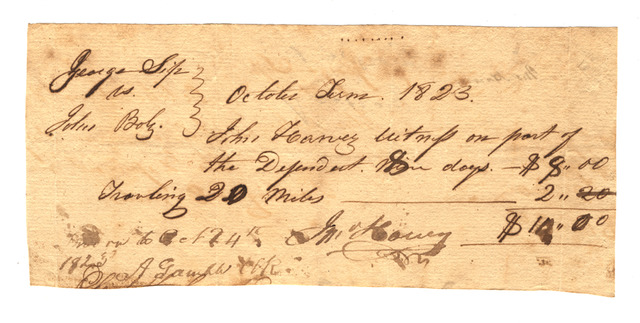 George Sip
vs.
John Boly
October Term. 1823.
John Harvey Witness on part of
the Dependent. days. — $ 8,, 00
Travling 20 Miles — 2,, 20
Jno Harvey $ 10,, 00
to Oct 24th
1823